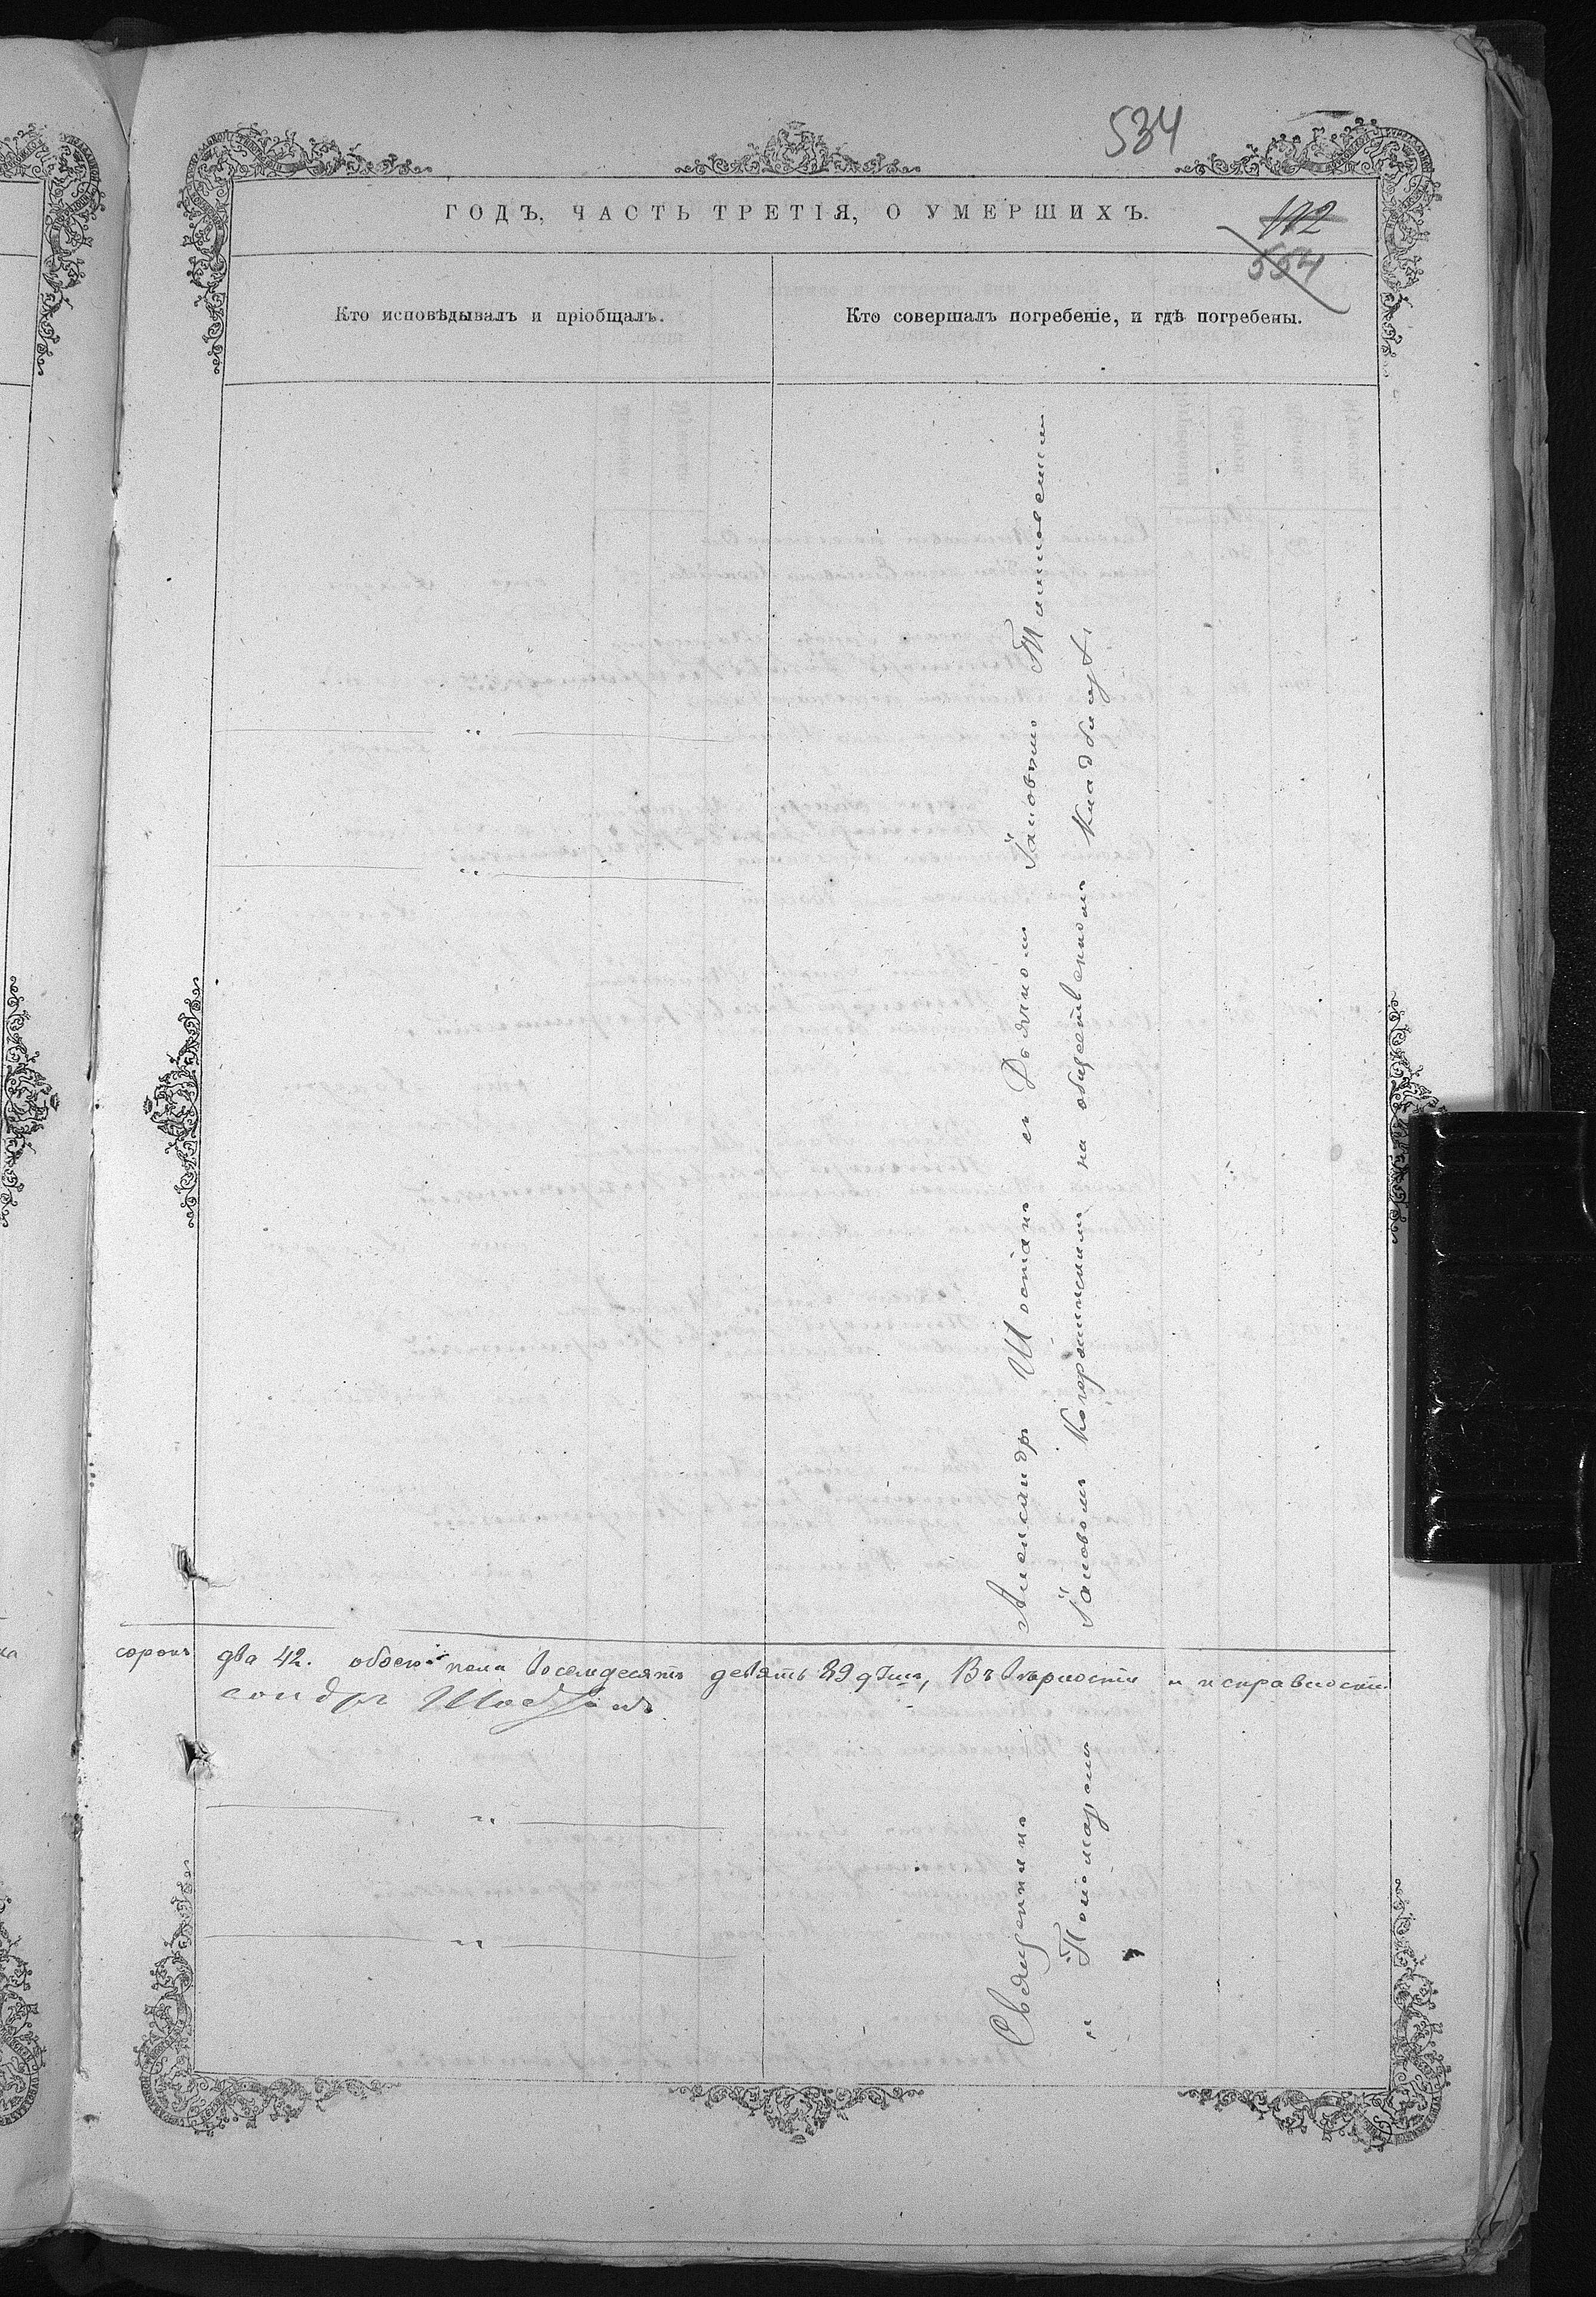 534
ГОДЪ, ЧАСТЬ ТРЕТІЯ, О УМЕРШИХЪ.
112
554
Кто исповѣдывалъ и пріобщалъ.
Кто совершалъ погребеніе, и где погребены.
Священникъ Александръ Шостакъ съ Дьякомъ Іаковомъ
и Пономаремъ Іаковомъ на общественномъ кладбищѣ
сорокъ два 42. обоего пола восемдесятъ девять 89 душъ, Въ вѣрности и исправности
сондръ Шостакъ